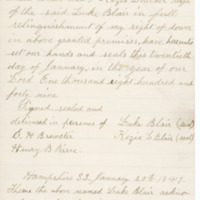 of the said Luke Blair in full
relinquishment of my right of dower
in above granted premises, have hereunto
set our hands and seals this twentieth
day of January, in the year of our
Lord One thousand eight hundred and
forty nine.
Signed sealed and
delivered in presence of Luke Blair (seal)
C. H. Brewster Blair (seal)
Henry B. Pierce
Hampshire SS. January 20th 1849.
Then the above named Luke Blair acknow-